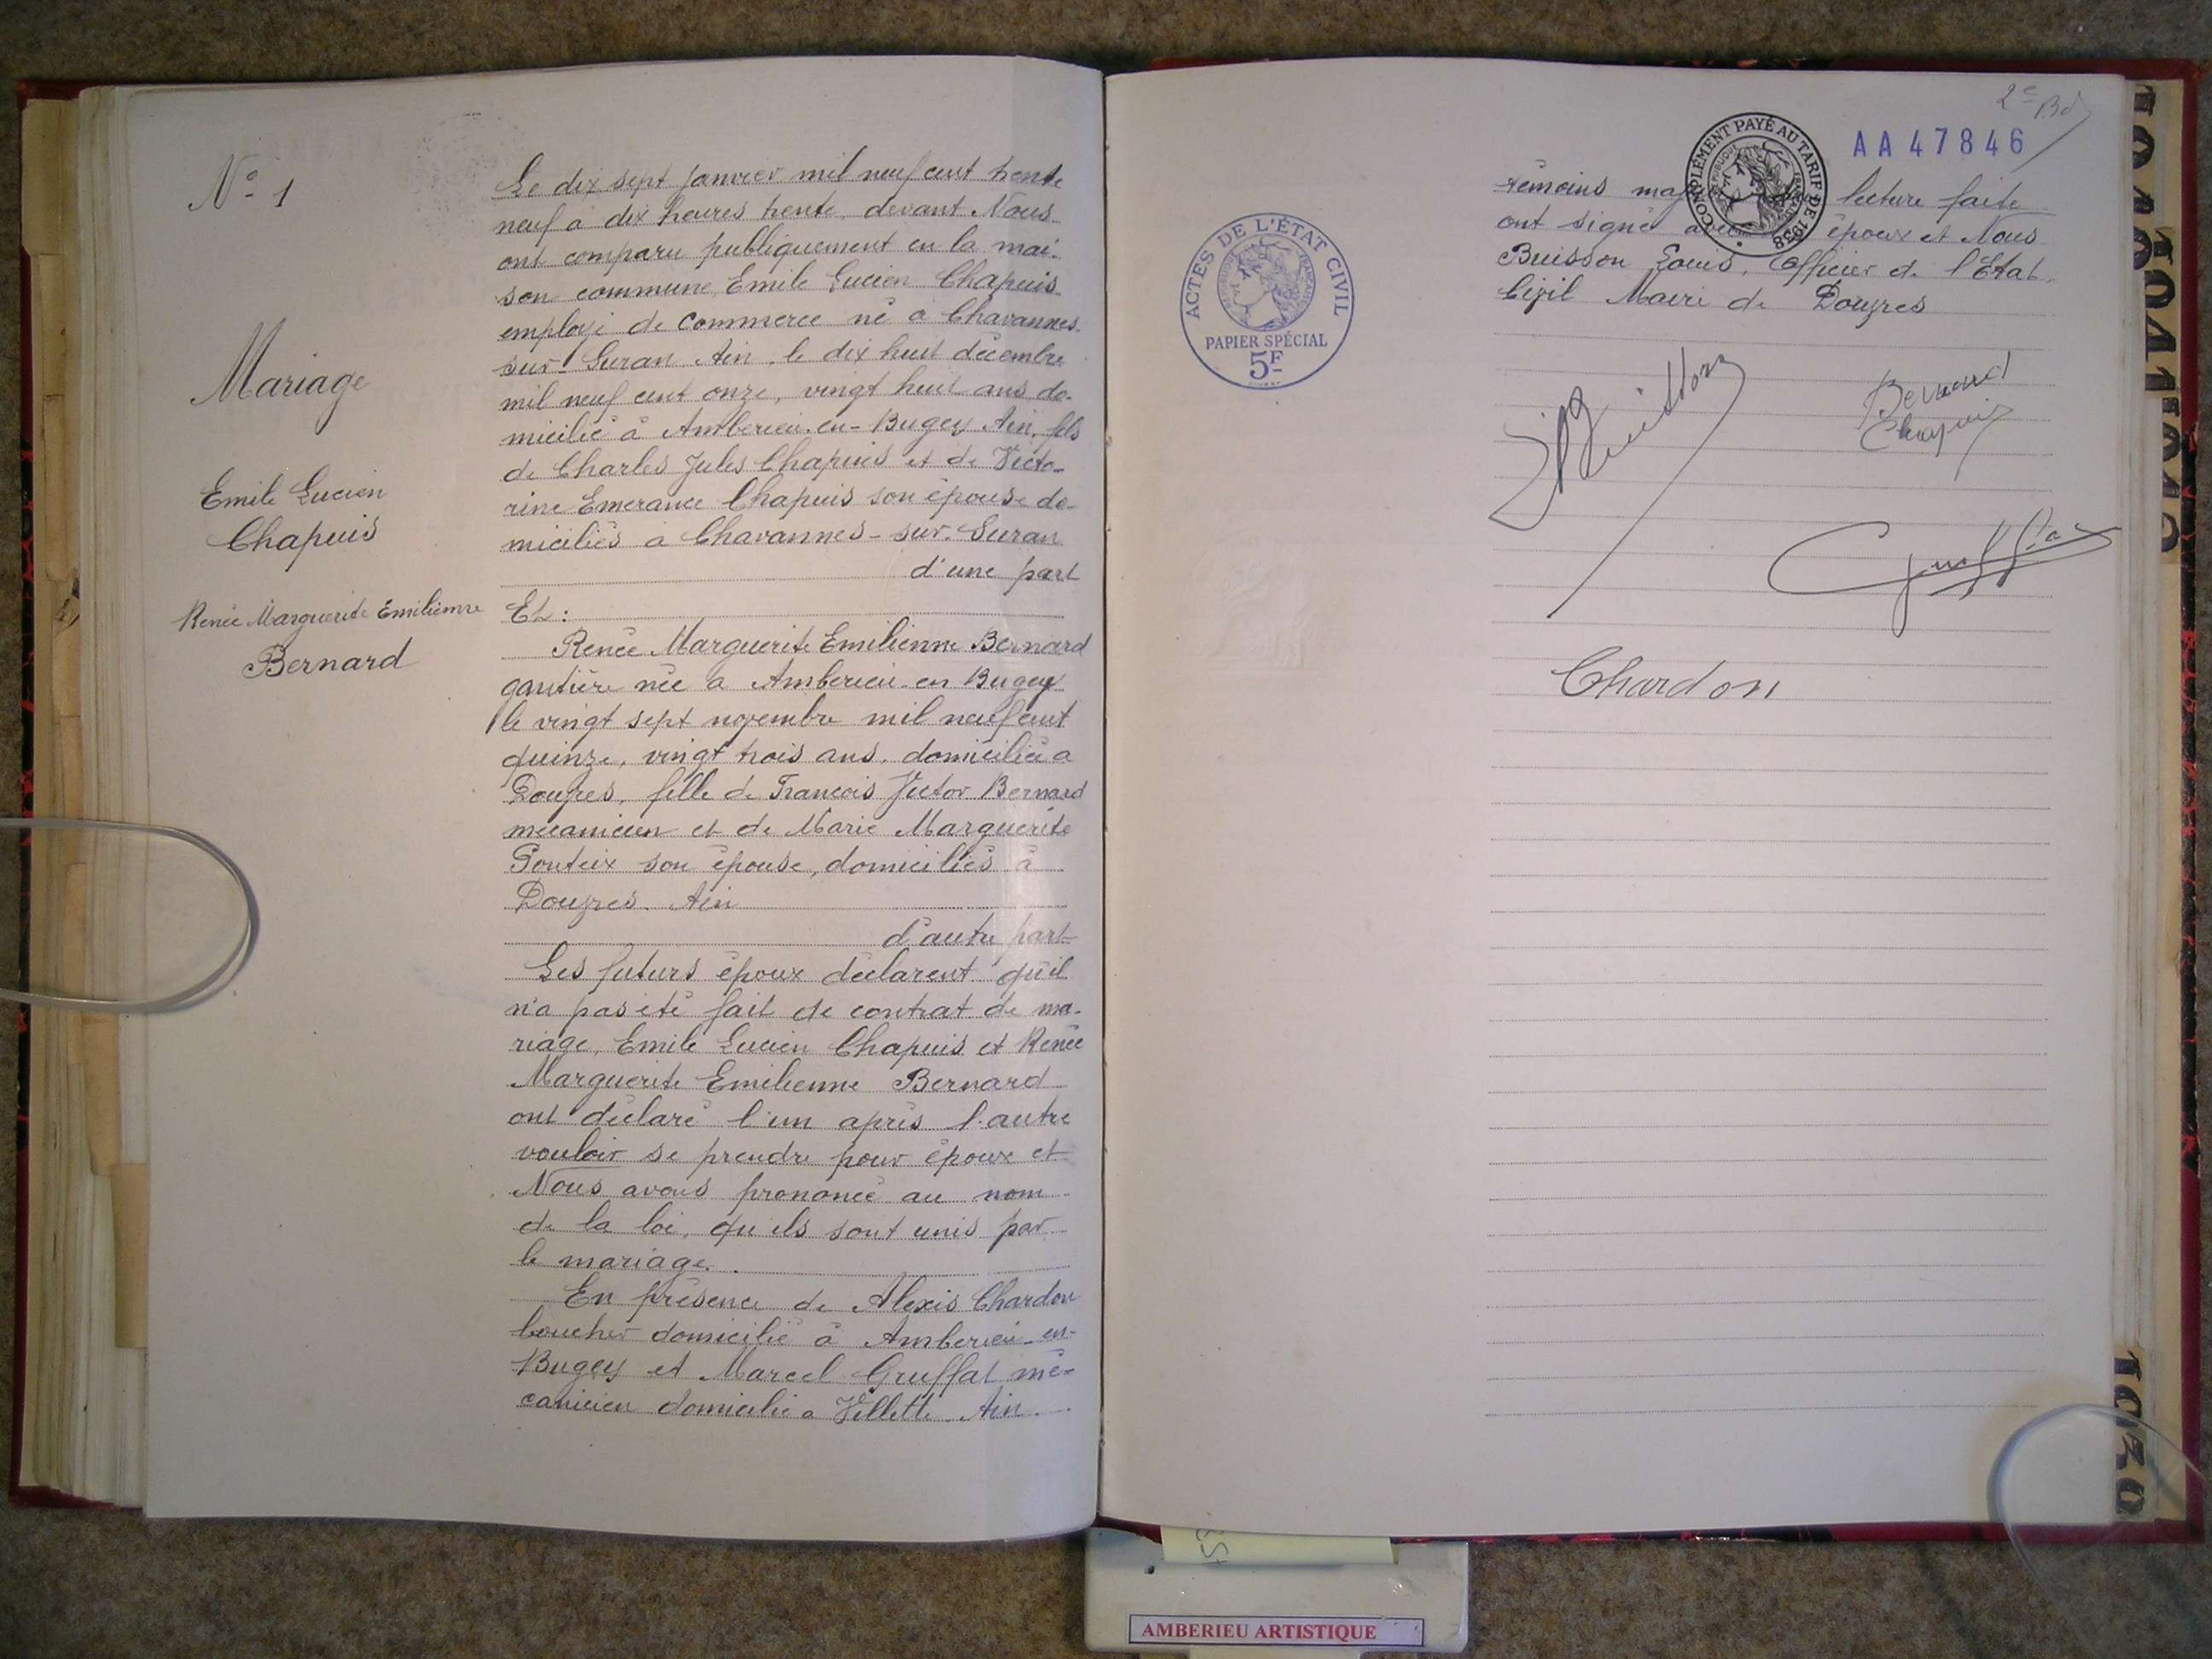 N° 1
Mariage
Emile Lucien
Chapuis
Renée Marguerite Emilienne
Bernard
Le dix sept janvier mil neuf cent trente
neuf a dix heures trente, devant Nous
ont comparu publiquement en la mai-
son commune, Emile Lucien Chapuis
employé de commerce né a Chavannes-
sur-Suran Ain, le dix huit décembre
mil neuf cent onze, vingt huit ans do-
micilié à Amberieu-en-Bugey Ain, fils
de Charles Jules Chapuis et de Victo-
rine Emerance Chapuis son épouse do-
miciliés a Chavannes-sur-Suran
d'une part
Et :
Renée Marguerite Emilienne Bernard
gantière née a Amberieu-en Bugey
le vingt sept novembre mil neuf cent
quinze, vingt trois ans, domiciliée a
Douvres, fille de Francois Victor Bernard
mecanicien et de Marie Marguerite
Ponteix son épouse, domiciliés à
Douvres. Ain
d'autre part
Les futurs époux déclarent qu'il
n'a pas été fait de contrat de ma-
riage, Emile Lucien Chapuis et Renée
Marguerite Emilienne Bernard
ont déclaré l'un après l'autre
vouloir se prendre pour époux et
Nous avons prononcé au nom
de la loi, qu'ils sont unis par
le mariage.
En présence de Alexis Chardon
boucher domicilié à Amberieu-en-
Bugey et Marcel Gruffat mé-
canicien domicilié a Villette Ain
2e Bd
AA 47846
COMPLÉMENT PAYÉ AU TARIF DE 1938
ACTES DE L'ÉTAT CIVIL
RÉPUBLIQUE FRANÇAISE
PAPIER SPÉCIAL
5F
témoins maj lecture faite
ont signé avec époux et Nous
Buisson Louis, Officier de l'Etat
Civil Maire de Douvres
Bernard
Chapuis
Gruffat
Chardon
AMBERIEU ARTISTIQUE